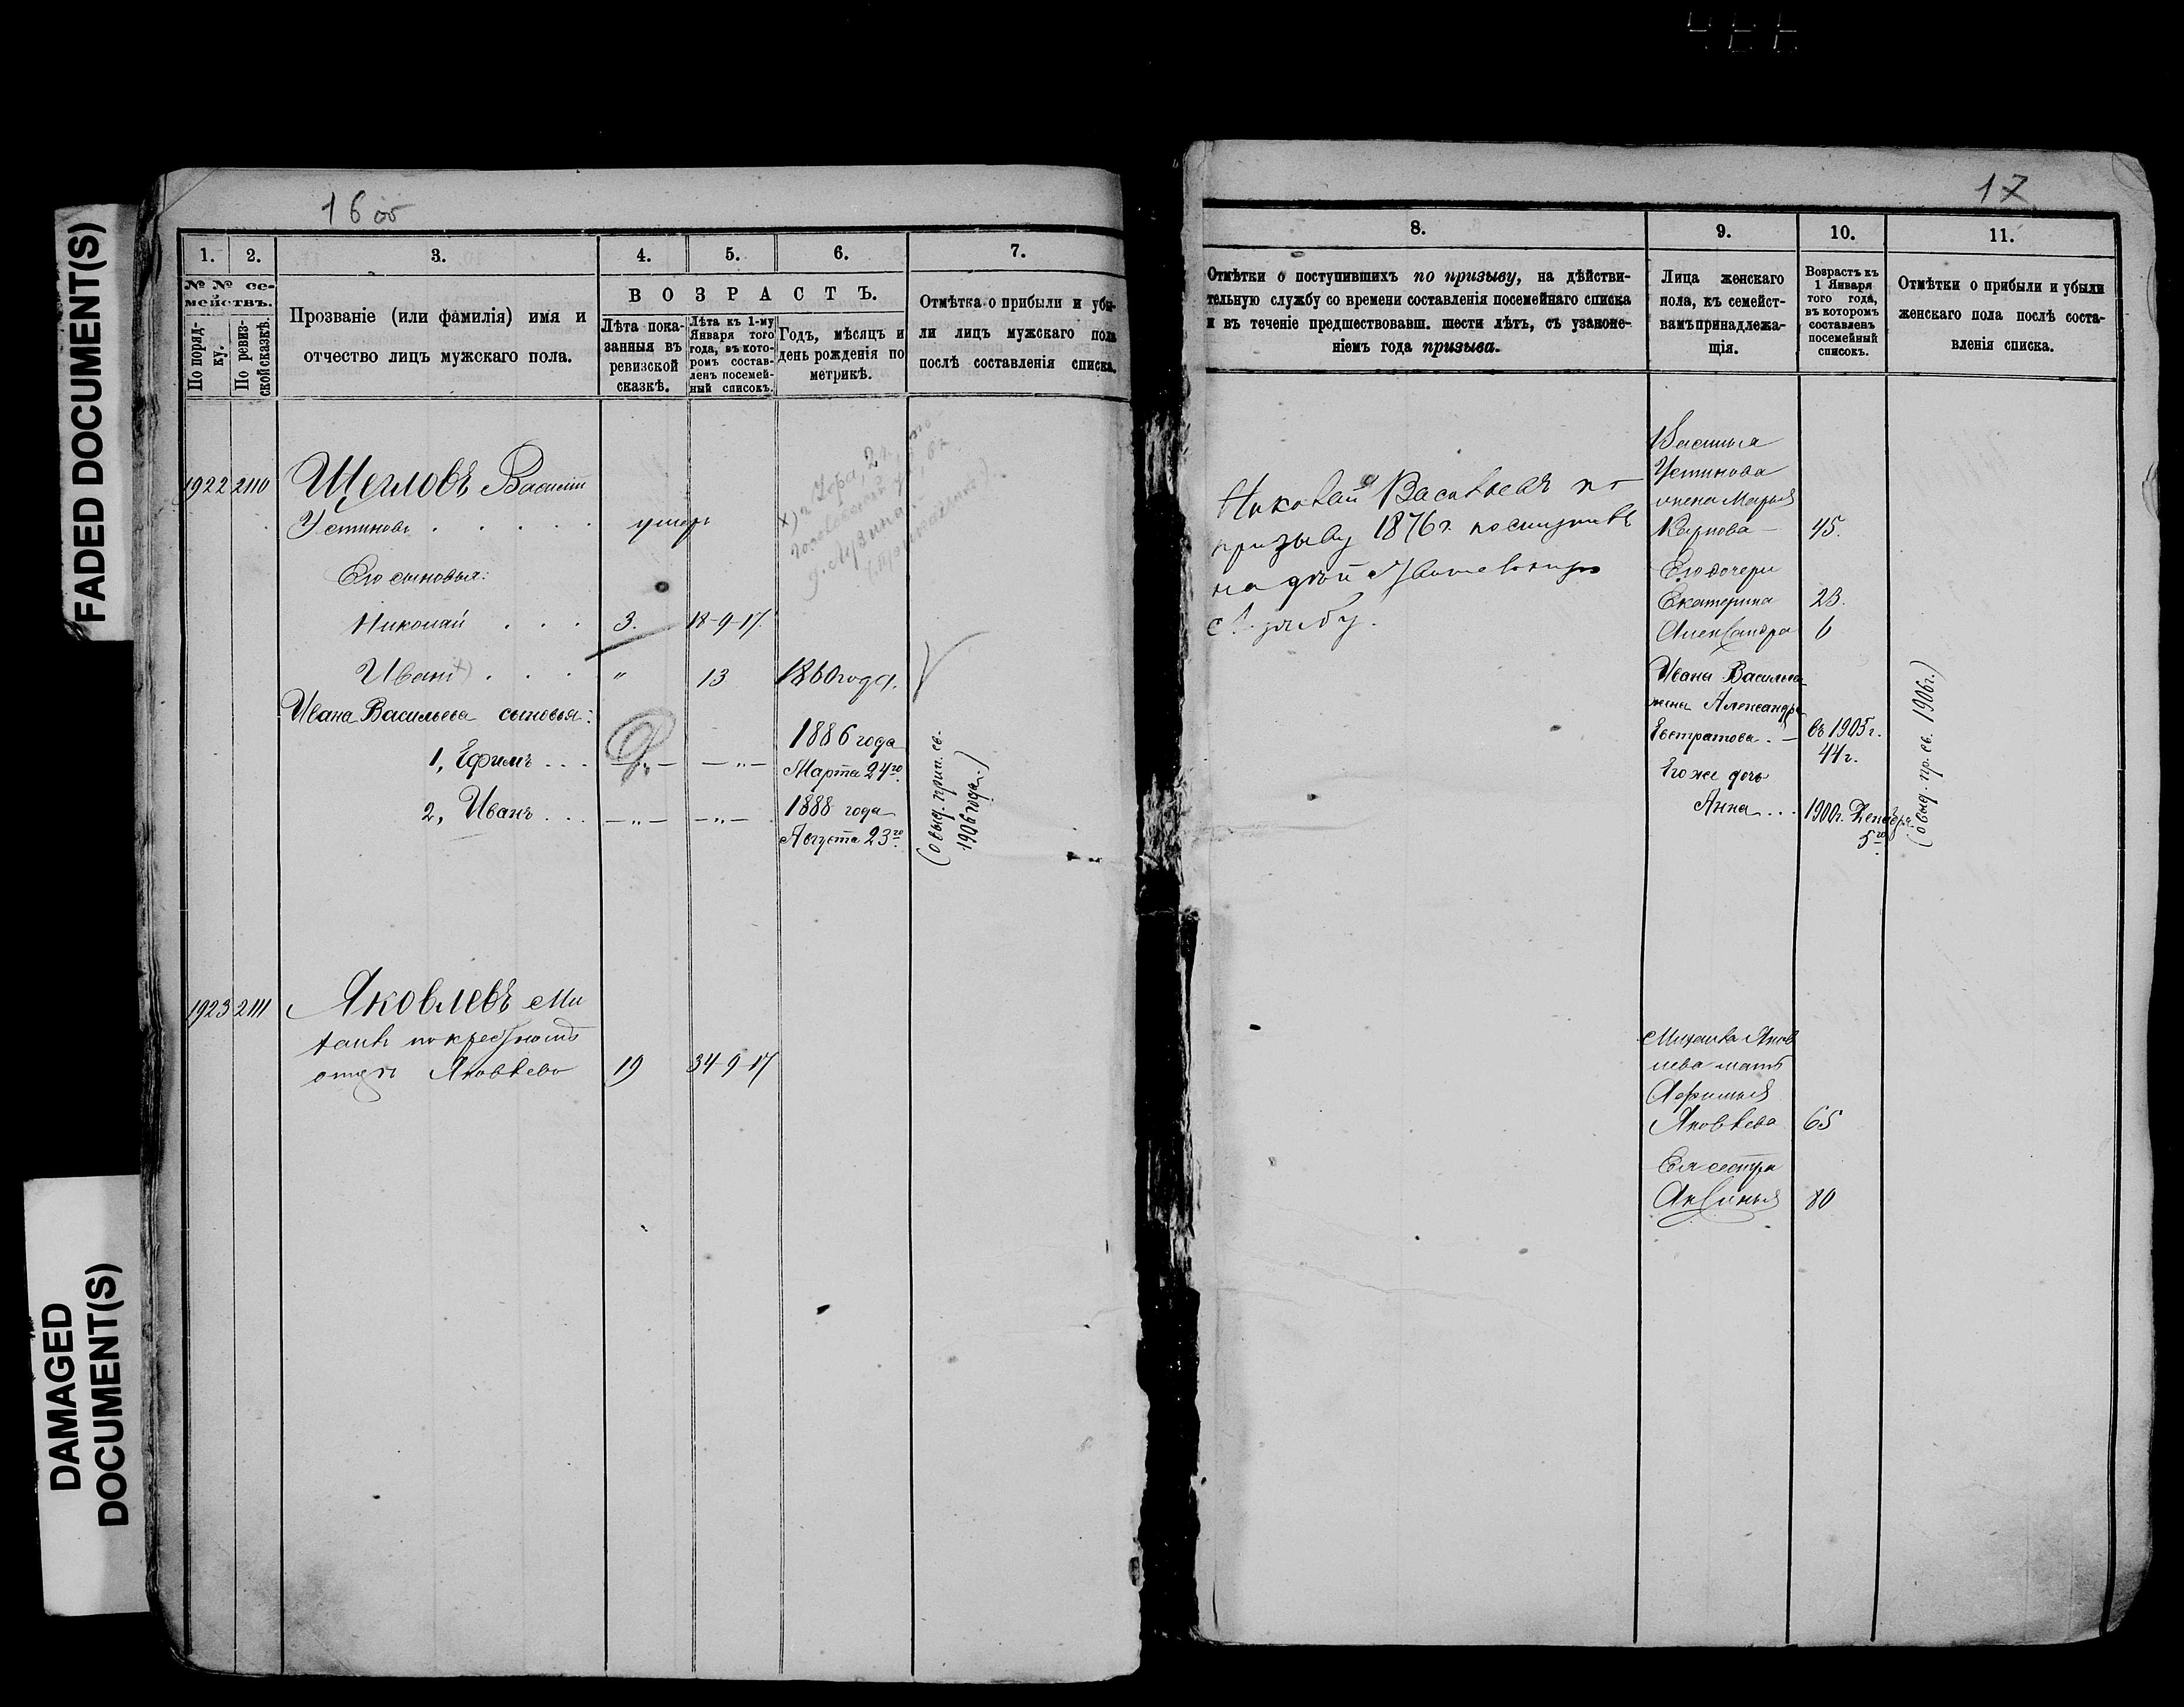 FADED DOCUMENT(S)
DAMAGED
DOCUMENT(S)
16 об
1.
2.
3.
4.
5.
6.
7.
№ № се-
мействъ.
По поряд-
ку.
По ревиз-
ской сказкѣ.
Прозваніе (или фамилія) имя и
отчество лицъ мужскаго пола.
ВОЗРАСТЪ.
Лѣта пока-
занныя въ
ревизской
сказкѣ.
Лѣта къ 1-му
Января того
года, въ кото-
ромъ состав-
ленъ посемей-
ный списокъ.
Годъ, мѣсяцъ и
день рожденія по
метрикѣ.
Отмѣтка о прибыли и убы-
ли лицъ мужскаго пола
послѣ составленія списка.
1922 2110 Щегловъ Василій
Устиновъ . . . . . умеръ
х) г. Уфа, 2 ч,
Его сыновья:
Николай . . . 3. 18-9-17.
Иванъ х) . . . " 13 1860 года.
Ивана Васильева сыновья:
1, Ефимъ . . . — „ — — „ — 1886 года
Марта 24го
2, Иванъ . . . — „ — — „ — 1888 года
Августа 23го
(овыд. прип. св.
1906 года.)
1923 2111 Яковлевъ Ми
хаилъ по крестному
отцу Яковлево 19 34-9-17
17
8.
9.
10.
11.
Отмѣтки о поступившихъ по призыву, на дѣйстви-
тельную службу со времени составленія посемейнаго списка
и въ теченіе предшествовавш. шести лѣтъ, съ узаконе-
ніемъ года призыва.
Лица женскаго
пола, къ семейст-
вамъ принадлежа-
щія.
Возрастъ къ
1 Января
того года,
въ которомъ
составленъ
посемейный
списокъ.
Отмѣтки о прибыли и убыли
женскаго пола послѣ соста-
вленія списка.
Николай Васильевъ по
призыву 1876 г. поступилъ
на дѣйствительную
службу.
Василья
Устинова
жена Марья
Карпова — 45.
Его дочери
Екатерина 23.
Александра 6
Ивана Васильева
жена Александра
Евстратова . — въ 1905 г.
44 г.
Его же дочь
Анна . . . 1900 г. Декабря
5го
(овыд. пр. св. 1906 г.)
Михаила Яков
лева мать
Афимья
Яковлева 65
Ея сестра
Аксинья 80